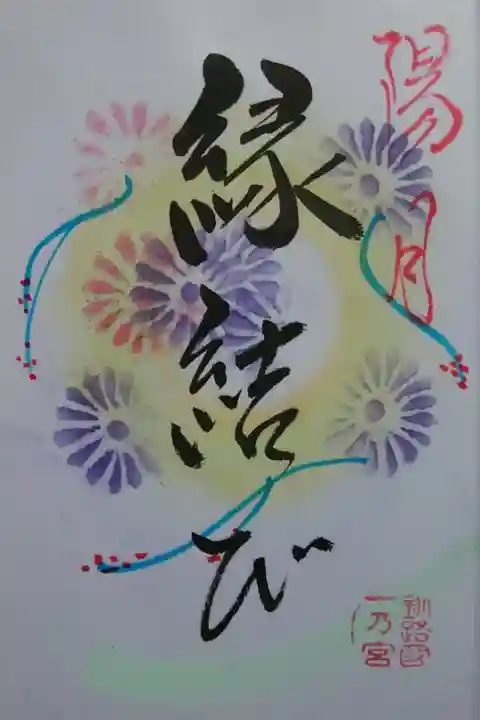 陽月
縁結び
釧路国
一乃宮